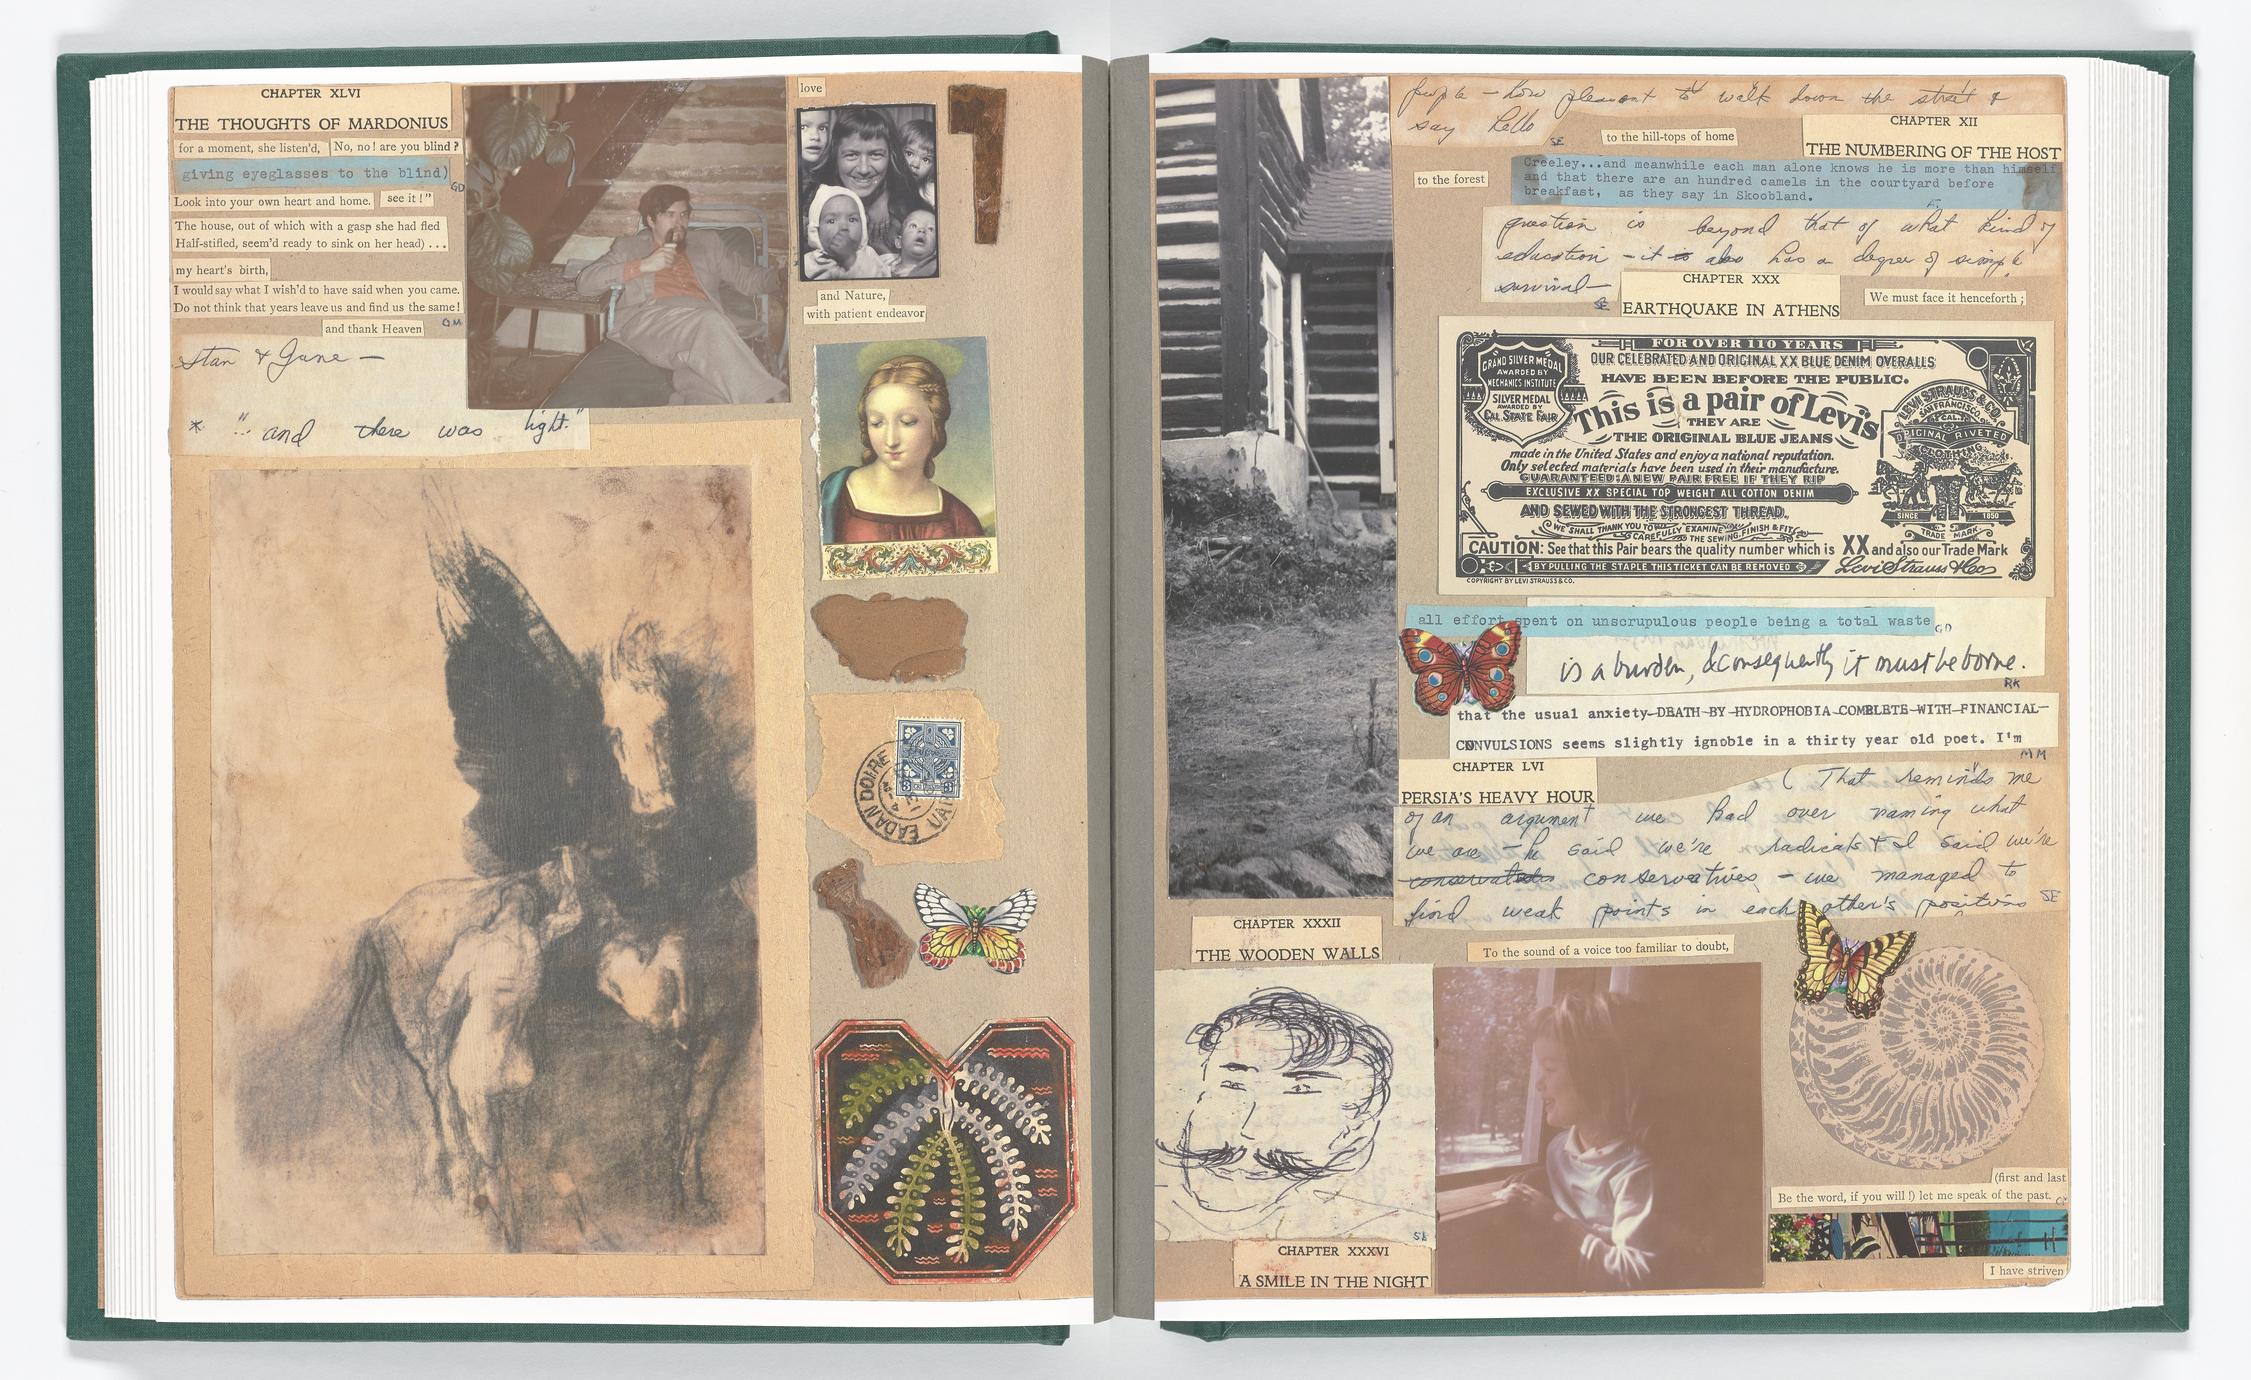 CHAPTER XLVI
THE THOUGHTS OF MARDONIUS
for a moment, she listen'd,
No, no! are you blind?
giving eyeglasses to the blind)
GD
Look into your own heart and home.
see it!"
The house, out of which with a gasp she had fled
Half-stifled, seem'd ready to sink on her head) ...
my heart's birth,
I would say what I wish'd to have said when you came.
Do not think that years leave us and find us the same!
and thank Heaven
OM
Stan & Jane —
* "... and there was light."
love
and Nature,
with patient endeavor
EADAN DOIRE
3 3
people – how pleasant to walk down the street &
say hello
SE
to the hill-tops of home
CHAPTER XII
THE NUMBERING OF THE HOST
to the forest
Creeley...and meanwhile each man alone knows he is more than himself
and that there are an hundred camels in the courtyard before
breakfast, as they say in Skoobland.
question is beyond that of what kind of
education – it is also has a degree of simple
survival—
SE
CHAPTER XXX
EARTHQUAKE IN ATHENS
We must face it henceforth;
FOR OVER 110 YEARS
OUR CELEBRATED AND ORIGINAL XX BLUE DENIM OVERALLS
HAVE BEEN BEFORE THE PUBLIC.
GRAND SILVER MEDAL
AWARDED BY
MECHANICS INSTITUTE
SILVER MEDAL
AWARDED BY
CAL. STATE FAIR
This is a pair of Levi's
THEY ARE
THE ORIGINAL BLUE JEANS
made in the United States and enjoy a national reputation.
Only selected materials have been used in their manufacture.
GUARANTEED: A NEW PAIR FREE IF THEY RIP
EXCLUSIVE XX SPECIAL TOP WEIGHT ALL COTTON DENIM
AND SEWED WITH THE STRONGEST THREAD.
WE SHALL THANK YOU TO CAREFULLY EXAMINE THE SEWING, FINISH & FIT
LEVI STRAUSS & CO.
SAN FRANCISCO,
CAL.
ORIGINAL RIVETED
CLOTHING
SINCE 1850
TRADE MARK
CAUTION: See that this Pair bears the quality number which is XX and also our Trade Mark
BY PULLING THE STAPLE THIS TICKET CAN BE REMOVED
Levi Strauss & Co
COPYRIGHT BY LEVI STRAUSS & CO.
all effort spent on unscrupulous people being a total waste
GD
is a burden, & consequently it must be borne.
RK
that the usual anxiety DEATH BY HYDROPHOBIA COMBLETE WITH FINANCIAL
CONVULSIONS seems slightly ignoble in a thirty year old poet. I'm
MM
CHAPTER LVI
PERSIA'S HEAVY HOUR
( That reminds me
of an argument we had over naming what
we are – he said we're radicals & I said we're
conservatives – we managed to
find weak points in each other's positions
SE
CHAPTER XXXII
THE WOODEN WALLS
To the sound of a voice too familiar to doubt,
SE
CHAPTER XXXVI
A SMILE IN THE NIGHT
(first and last
Be the word, if you will!) let me speak of the past.
I have striven